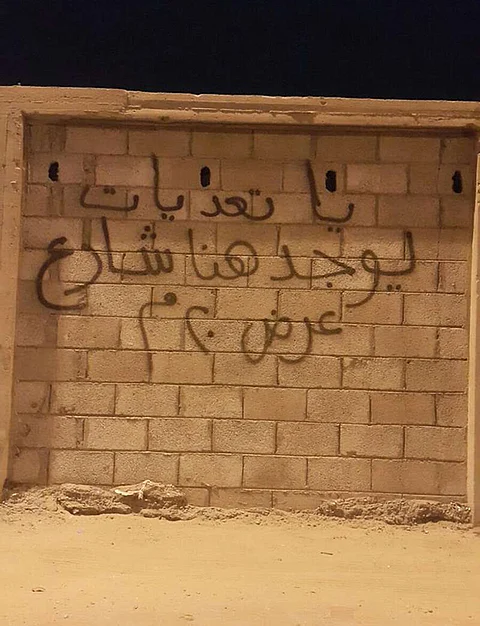 يا تعديات
يوجد هنا شارع
عرض ٢٠ م